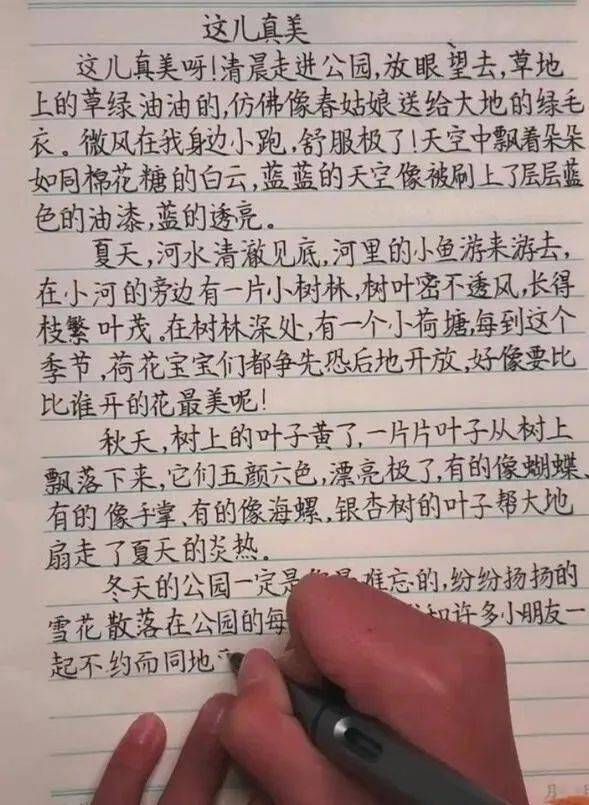 这儿真美
这儿真美呀!清晨走进公园,放眼望去,草地
上的草绿油油的,仿佛像春姑娘送给大地的绿毛
衣。微风在我身边小跑,舒服极了!天空中飘着朵朵
如同棉花糖的白云,蓝蓝的天空像被刷上了层层蓝
色的油漆,蓝的透亮。
夏天,河水清澈见底,河里的小鱼游来游去,
在小河的旁边有一片小树林,树叶密不透风,长得
枝繁叶茂。在树林深处,有一个小荷塘,每到这个
季节,荷花宝宝们都争先恐后地开放,好像要比
比谁开的花最美呢!
秋天,树上的叶子黄了,一片片叶子从树上
飘落下来,它们五颜六色,漂亮极了,有的像蝴蝶、
有的像手掌、有的像海螺,银杏树的叶子帮大地
扇走了夏天的炎热。
冬天的公园一定是难忘的,纷纷扬扬的
雪花散落在公园的每和许多小朋友一
起不约而同地
月